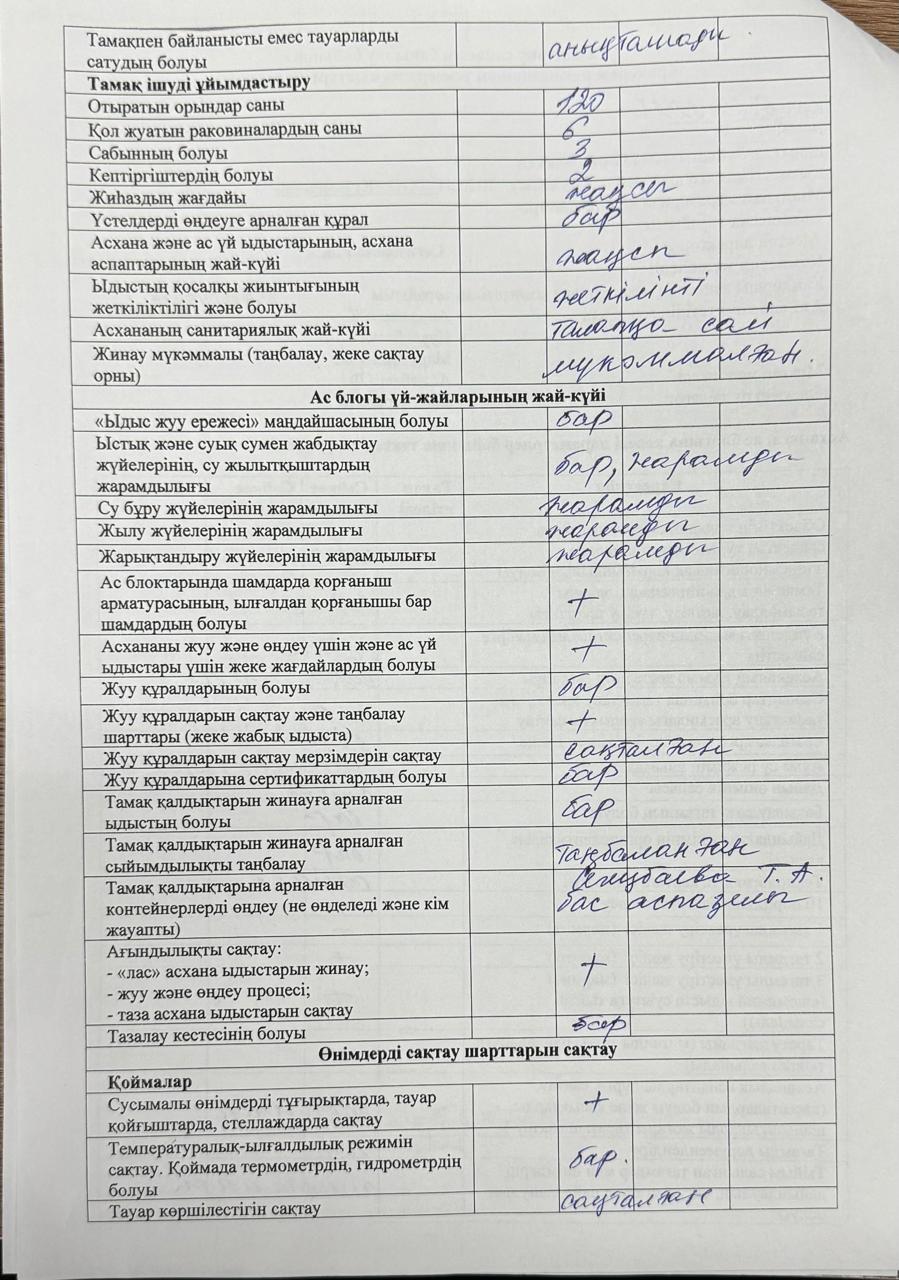 Тамақпен байланысты емес тауарларды
сатудың болуы
анықталмады
Тамақ ішуді ұйымдастыру
Отыратын орындар саны 120
Қол жуатын раковиналардың саны 6
Сабынның болуы 3
Кептіргіштердің болуы 2
Жиһаздың жағдайы жақсы
Үстелдерді өңдеуге арналған құрал бар
Асхана және ас үй ыдыстарының, асхана
аспаптарының жай-күйі жақсы
Ыдыстың қосалқы жиынтығының
жеткіліктілігі және болуы жеткілікті
Асхананың санитариялық жай-күйі талапқа сай
Жинау мүкәммалы (таңбалау, жеке сақтау
орны) мүкәммалған.
Ас блогы үй-жайларының жай-күйі
«Ыдыс жуу ережесі» маңдайшасының болуы бар
Ыстық және суық сумен жабдықтау
жүйелерінің, су жылытқыштардың бар, жарамды
жарамдылығы
Су бұру жүйелерінің жарамдылығы жарамды
Жылу жүйелерінің жарамдылығы жарамды
Жарықтандыру жүйелерінің жарамдылығы жарамды
Ас блоктарында шамдарда қорғаныш
арматурасының, ылғалдан қорғанышы бар +
шамдардың болуы
Асхананы жуу және өңдеу үшін және ас үй +
ыдыстары үшін жеке жағдайлардың болуы
Жуу құралдарының болуы бар
Жуу құралдарын сақтау және таңбалау +
шарттары (жеке жабық ыдыста)
Жуу құралдарын сақтау мерзімдерін сақтау сақталған
Жуу құралдарына сертификаттардың болуы бар
Тамақ қалдықтарын жинауға арналған
ыдыстың болуы бар
Тамақ қалдықтарын жинауға арналған
сыйымдылықты таңбалау таңбаланған
Тамақ қалдықтарына арналған Т. А.
контейнерлерді өңдеу (не өңделеді және кім бас аспазшы
жауапты)
Ағындылықты сақтау:
- «лас» асхана ыдыстарын жинау; +
- жуу және өңдеу процесі;
- таза асхана ыдыстарын сақтау
Тазалау кестесінің болуы бар
Өнімдерді сақтау шарттарын сақтау
Қоймалар
Сусымалы өнімдерді тұғырықтарда, тауар +
қойғыштарда, стеллаждарда сақтау
Температуралық-ылғалдылық режимін
сақтау. Қоймада термометрдің, гидрометрдің бар.
болуы
Тауар көршілестігін сақтау сақталған